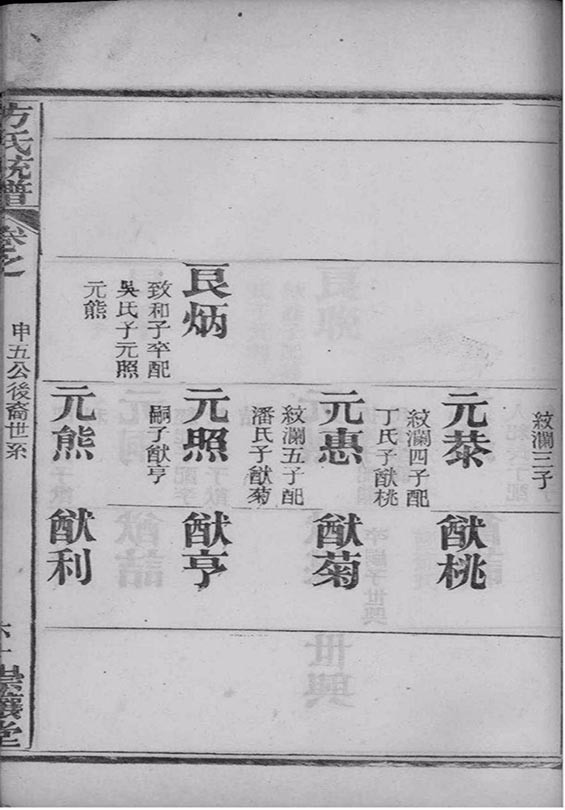 良炳
致和子卒配
吳氏子元照
元熊
紋瀾三子
元恭
紋瀾四子配
丁氏子猷桃
元惠
紋瀾五子配
潘氏子猷菊
元照
嗣子猷亨
元熊
猷桃
猷菊
猷亨
猷利
方氏統譜
卷之
申五公後裔世系
崇讓堂